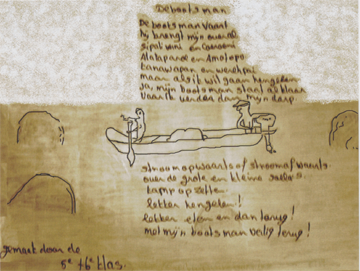 De bootsman
De bootsman vaart
hij brengt mijn overal
Sipaliwini en Coeroeni
Alalaparoe en Amotopo
maar als ik wil gaan hengelen
ja, mijn bootsman staat al klaar
vaar ik verder dan mijn dorp
stroomopwaarts of stroomafwaarts
over de grote en kleine
kamp opzetten.
lekker hengelen!
lekker eten en dan terug!
met mijn bootsman veilig terug!
gemaakt door de
5e + 6e klas.